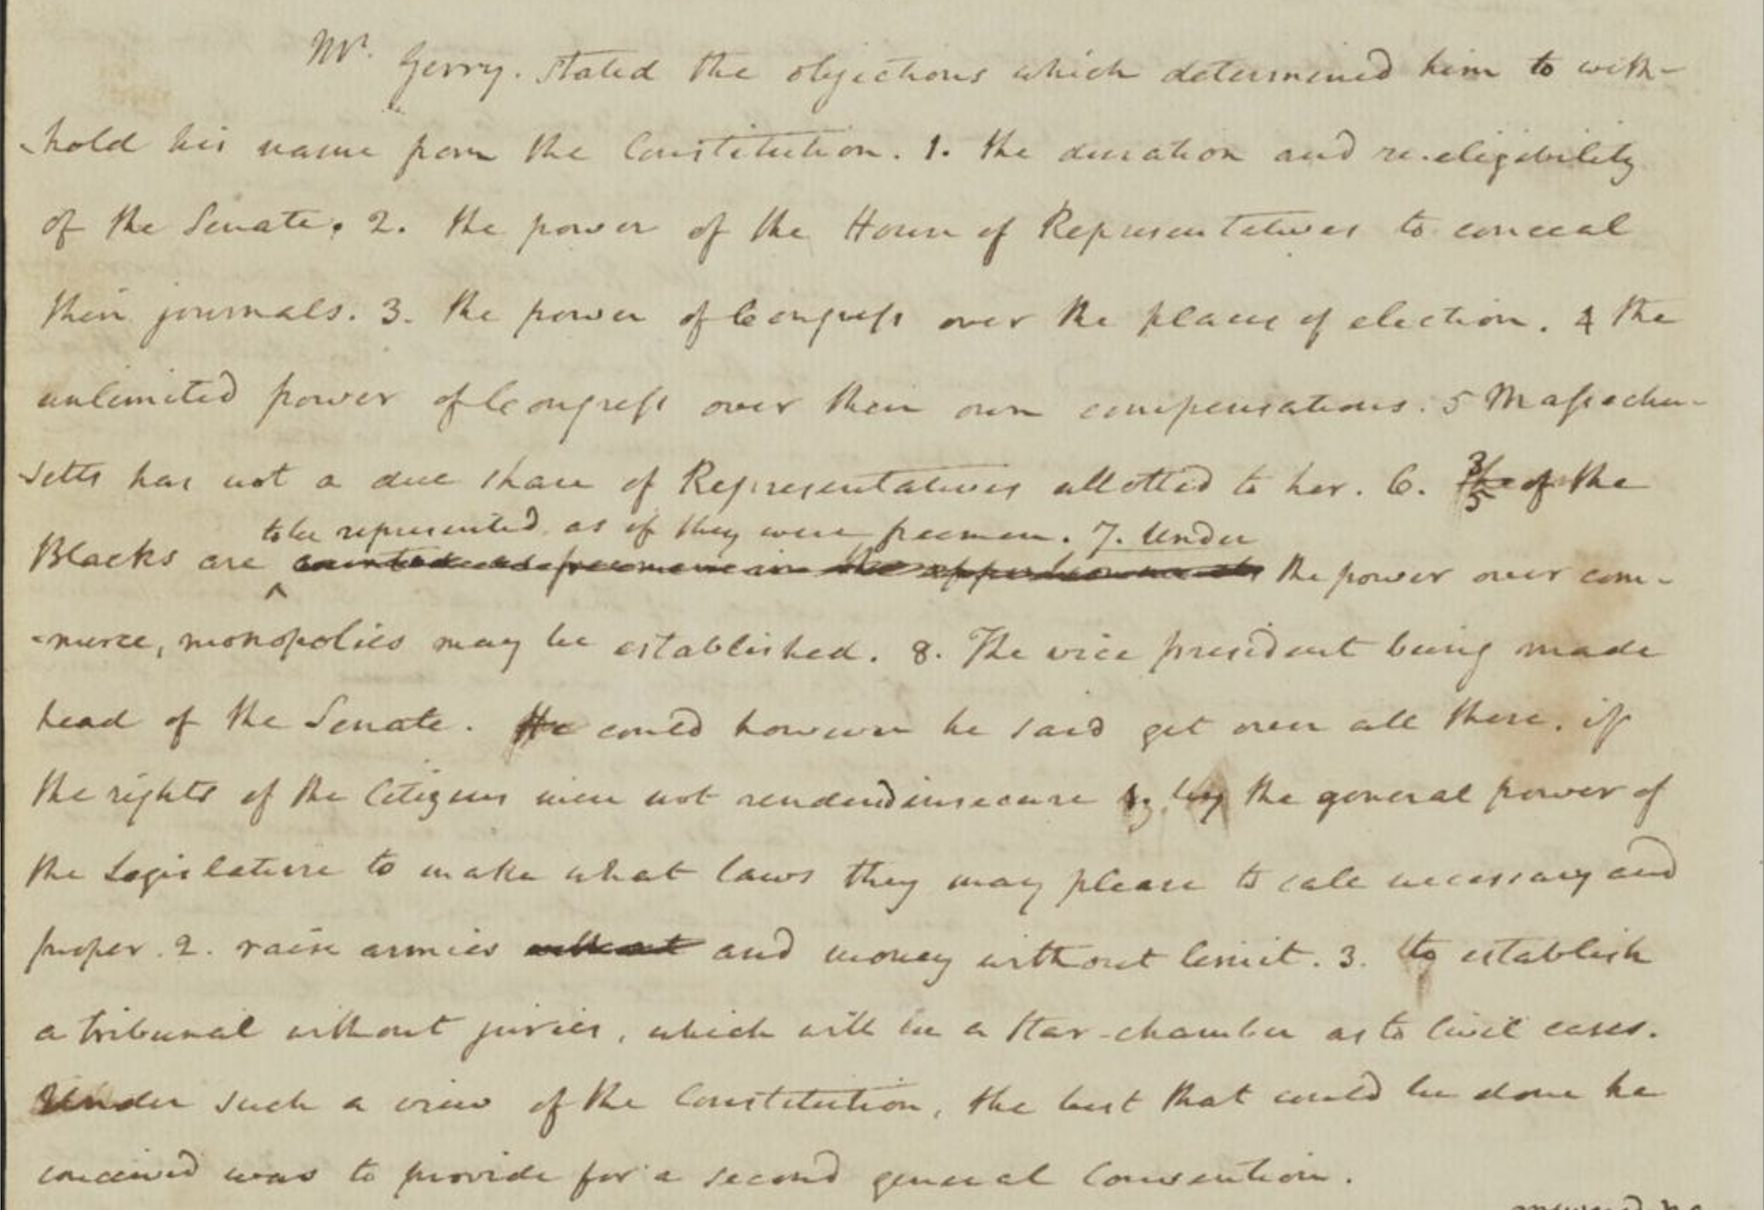 Mr. Gerry. stated the objections which determined him to with-
-hold his name from the Constitution. 1. the duration and re-eligibility
of the Senate. 2. the power of the House of Representatives to conceal
their journals. 3. the power of Congress over the places of election. 4 the
unlimited power of Congress over their own compensations. 5 Massachu-
-setts has not a due share of Representatives allotted to her. 6. 3/5 of the
to be represented as if they were freemen. 7. Under
Blacks are counted as freemen in the apportionments the power over com-
-merce, monopolies may be established. 8. The vice president being made
head of the Senate. He could however he said get over all these, if
the rights of the Citizens were not rendered insecure 1. by the general power of
the Legislature to make what laws they may please to call necessary and
proper. 2. raise armies without and money without limit. 3. to establish
a tribunal without juries, which will be a Star-chamber as to Civil cases.
Under such a view of the Constitution, the best that could be done he
conceived was to provide for a second general Convention.